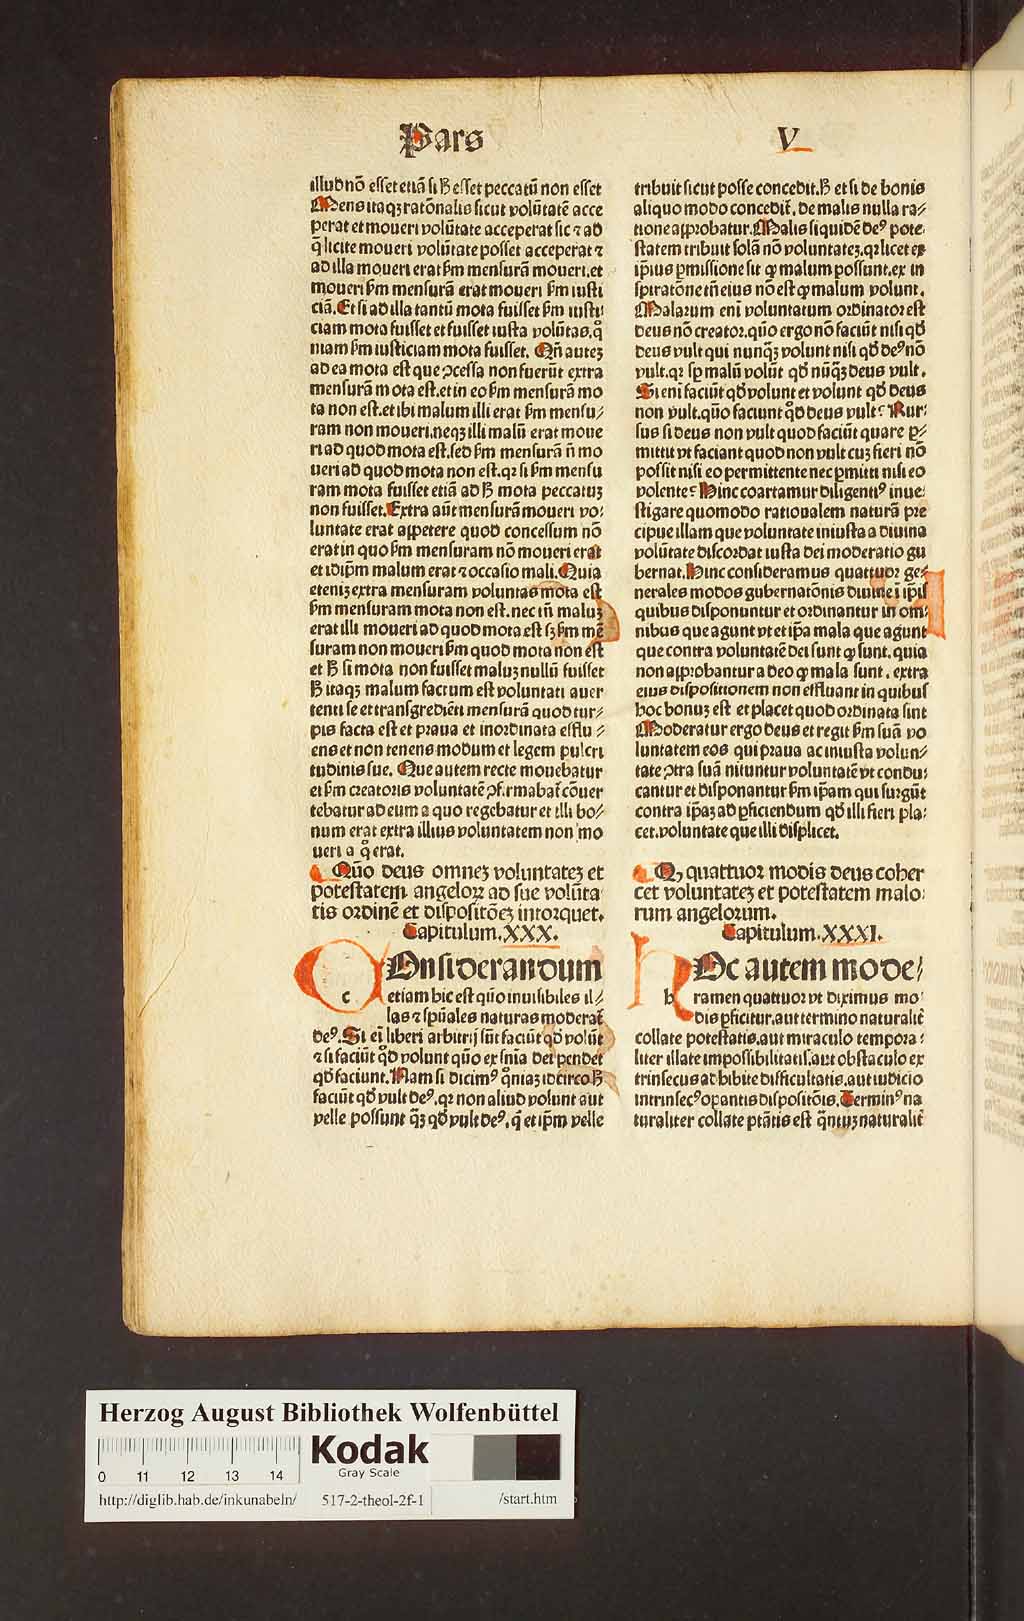 Pars
V
illud nō esset etiā si ꝧ esset peccatū non esset
Mens itaqꝫ ratōnalis sicut volūtatē acce
perat et moueri volūtate acceperat sic ⁊ ad
q̄ licite moueri volūtate posset acceperat ⁊
ad illa moueri erat ẜm mensurā moueri. et
moueri ẜm mensurā erat moueri ẜm iusti
ciā. Et si ad illa tantū mota fuisset ẜm iusti
ciam mota fuisset et fuisset iusta volūtas. qͦ
niam ẜm iusticiam mota fuisset. Qñ auteꝫ
ad ea mota est que ꝯcessa non fuerūt extra
mensurā mota est. et in eo ẜm mensurā mo
ta non est. et ibi malum illi erat ẜm mensu⸗
ram non moueri. neqꝫ illi malū erat moue
ri ad quod mota est. sed ẜm mensurā ñ mo
ueri ad quod mota non est. qꝛ si ẜm mensu
ram mota fuisset etiā ad ꝧ mota peccatuꝫ
non fuisset. Extra aūt mensurā moueri vo⸗
luntate erat appetere quod concessum nō
erat in quo ẜm mensuram nō moueri erat
et idip̄m malum erat ⁊ occasio mali. Quia
eteniꝫ extra mensuram voluntas mota est
ẜm mensuram mota non est. nec tñ maluꝫ
erat illi moueri ad quod mota est sꝫ ẜm mē
suram non moueri ẜm quod mota non est
et ꝧ si mota non fuisset maluꝫ nullū fuisset
ꝧ itaqꝫ malum factum est voluntati auer
tenti se et transgrediēti mensurā quod tur⸗
pis facta est et praua et inordinata efflu⸗
ens et non tenens modum et legem pulcri
tudinis sue. Que autem recte mouebatur
et ẜm creatoris voluntatē ꝯfirmabat̄ cōuer
tebatur ad eum a quo regebatur et illi bo⸗
num erat extra illius voluntatem non mo
ueri a qͦ erat.
Quō deus omneꝫ voluntates et
potestatem angeloꝝ ad sue volūta
tis ordinē et dispositōeꝫ intorquet.
Capitulum. XXX.
c
Onsiderandum
etiam hic est quō inuisibiles il⸗
las ⁊ sp̄uales naturas moderat̄
deꝰ. Si eī liberi arbitrij sūt faciūt qd̄ volūt
⁊ si faciūt qͦd volunt quō ex sñia dei pendet
qd̄ faciunt. Nam si dicimꝰ qͦniaꝫ idcirco ꝧ
faciūt qd̄ vult deꝰ. qꝛ non aliud volunt aut
velle possunt q̄ꝫ qd̄ vult deꝰ. q̄ et ip̄m velle
tribuit sicut posse concedit. ꝧ et si de bonis
aliquo modo concedit̄. de malis nulla ra⸗
tione approbatur. Malis siquidē deꝰ pote⸗
statem tribuit solā nō voluntateꝫ. qꝛ licet ex
ip̄ius ꝑmissione sit ꝙ malum possunt. ex in
spiratōne tñ eius nō est ꝙ malum volunt.
Malarum eni voluntatum ordinator est
deus nō creator. quō ergo nō faciūt nisi qd̄
deus vult qui nunqꝫ volunt nisi qd̄ deꝰ nō
vult. qꝛ sꝑ malū volūt qd̄ nūqꝫ deus vult.
Si eni faciūt qd̄ volunt et volunt qd̄ deus
non vult. quō faciunt qͦd deus vult? Rur⸗
sus si deus non vult quod faciūt quare ꝑ⸗
mittit vt faciant quod non vult cuꝫ fieri nō
possit nisi eo permittente nec ꝑmitti nisi eo
volente? Hinc coartamur diligentiꝰ inue⸗
stigare quomodo rationalem naturā pre
cipue illam que voluntate iniusta a diuina
volūtate discordat iusta dei moderatio gu
bernat. Hinc consideramus quattuor ge⸗
nerales modos gubernatōnis diuine ī ip̄is
quibus disponuntur et ordinantur in om⸗
nibus que agunt vt et ip̄a mala que agunt
que contra voluntatē dei sunt ꝙ sunt. quia
non approbantur a deo ꝙ mala sunt. extra
eius dispositionem non effluant in quibus
hoc bonuꝫ est et placet quod ordinata sint
Moderatur ergo deus et regit ẜm suā vo
luntatem eos qui praua ac iniusta volun⸗
tate ꝯtra suā nituntur voluntatē vt condu⸗
cantur et disponantur ẜm ip̄am qui surgūt
contra ip̄aꝫ ad ꝑficiendum qd̄ illi fieri pla⸗
cet. voluntate que illi displicet.
Qꝫ quattuor modis deus coher
cet voluntateꝫ et potestatem malo⸗
rum angelorum.
Capitulum. XXXI.
h
Oc autem mode⸗
ramen quattuor vt diximus mo⸗
dis ꝑficitur. aut termino naturalit̄
collate potestatis. aut miraculo tempora⸗
liter illate impossibilitatis. aut obstaculo ex
trinsecus adhibite difficultatis. aut iudicio
intrinsecꝰ oꝑantis dispositōis. Terminꝰ na
turaliter collate ptātis est q̄ntuꝫ naturalit̄
Herzog August Bibliothek Wolfenbüttel
Kodak
Gray Scale
0 11 12 13 14
http://diglib.hab.de/inkunabeln/ 517-2-theol-2f-1 /start.htm